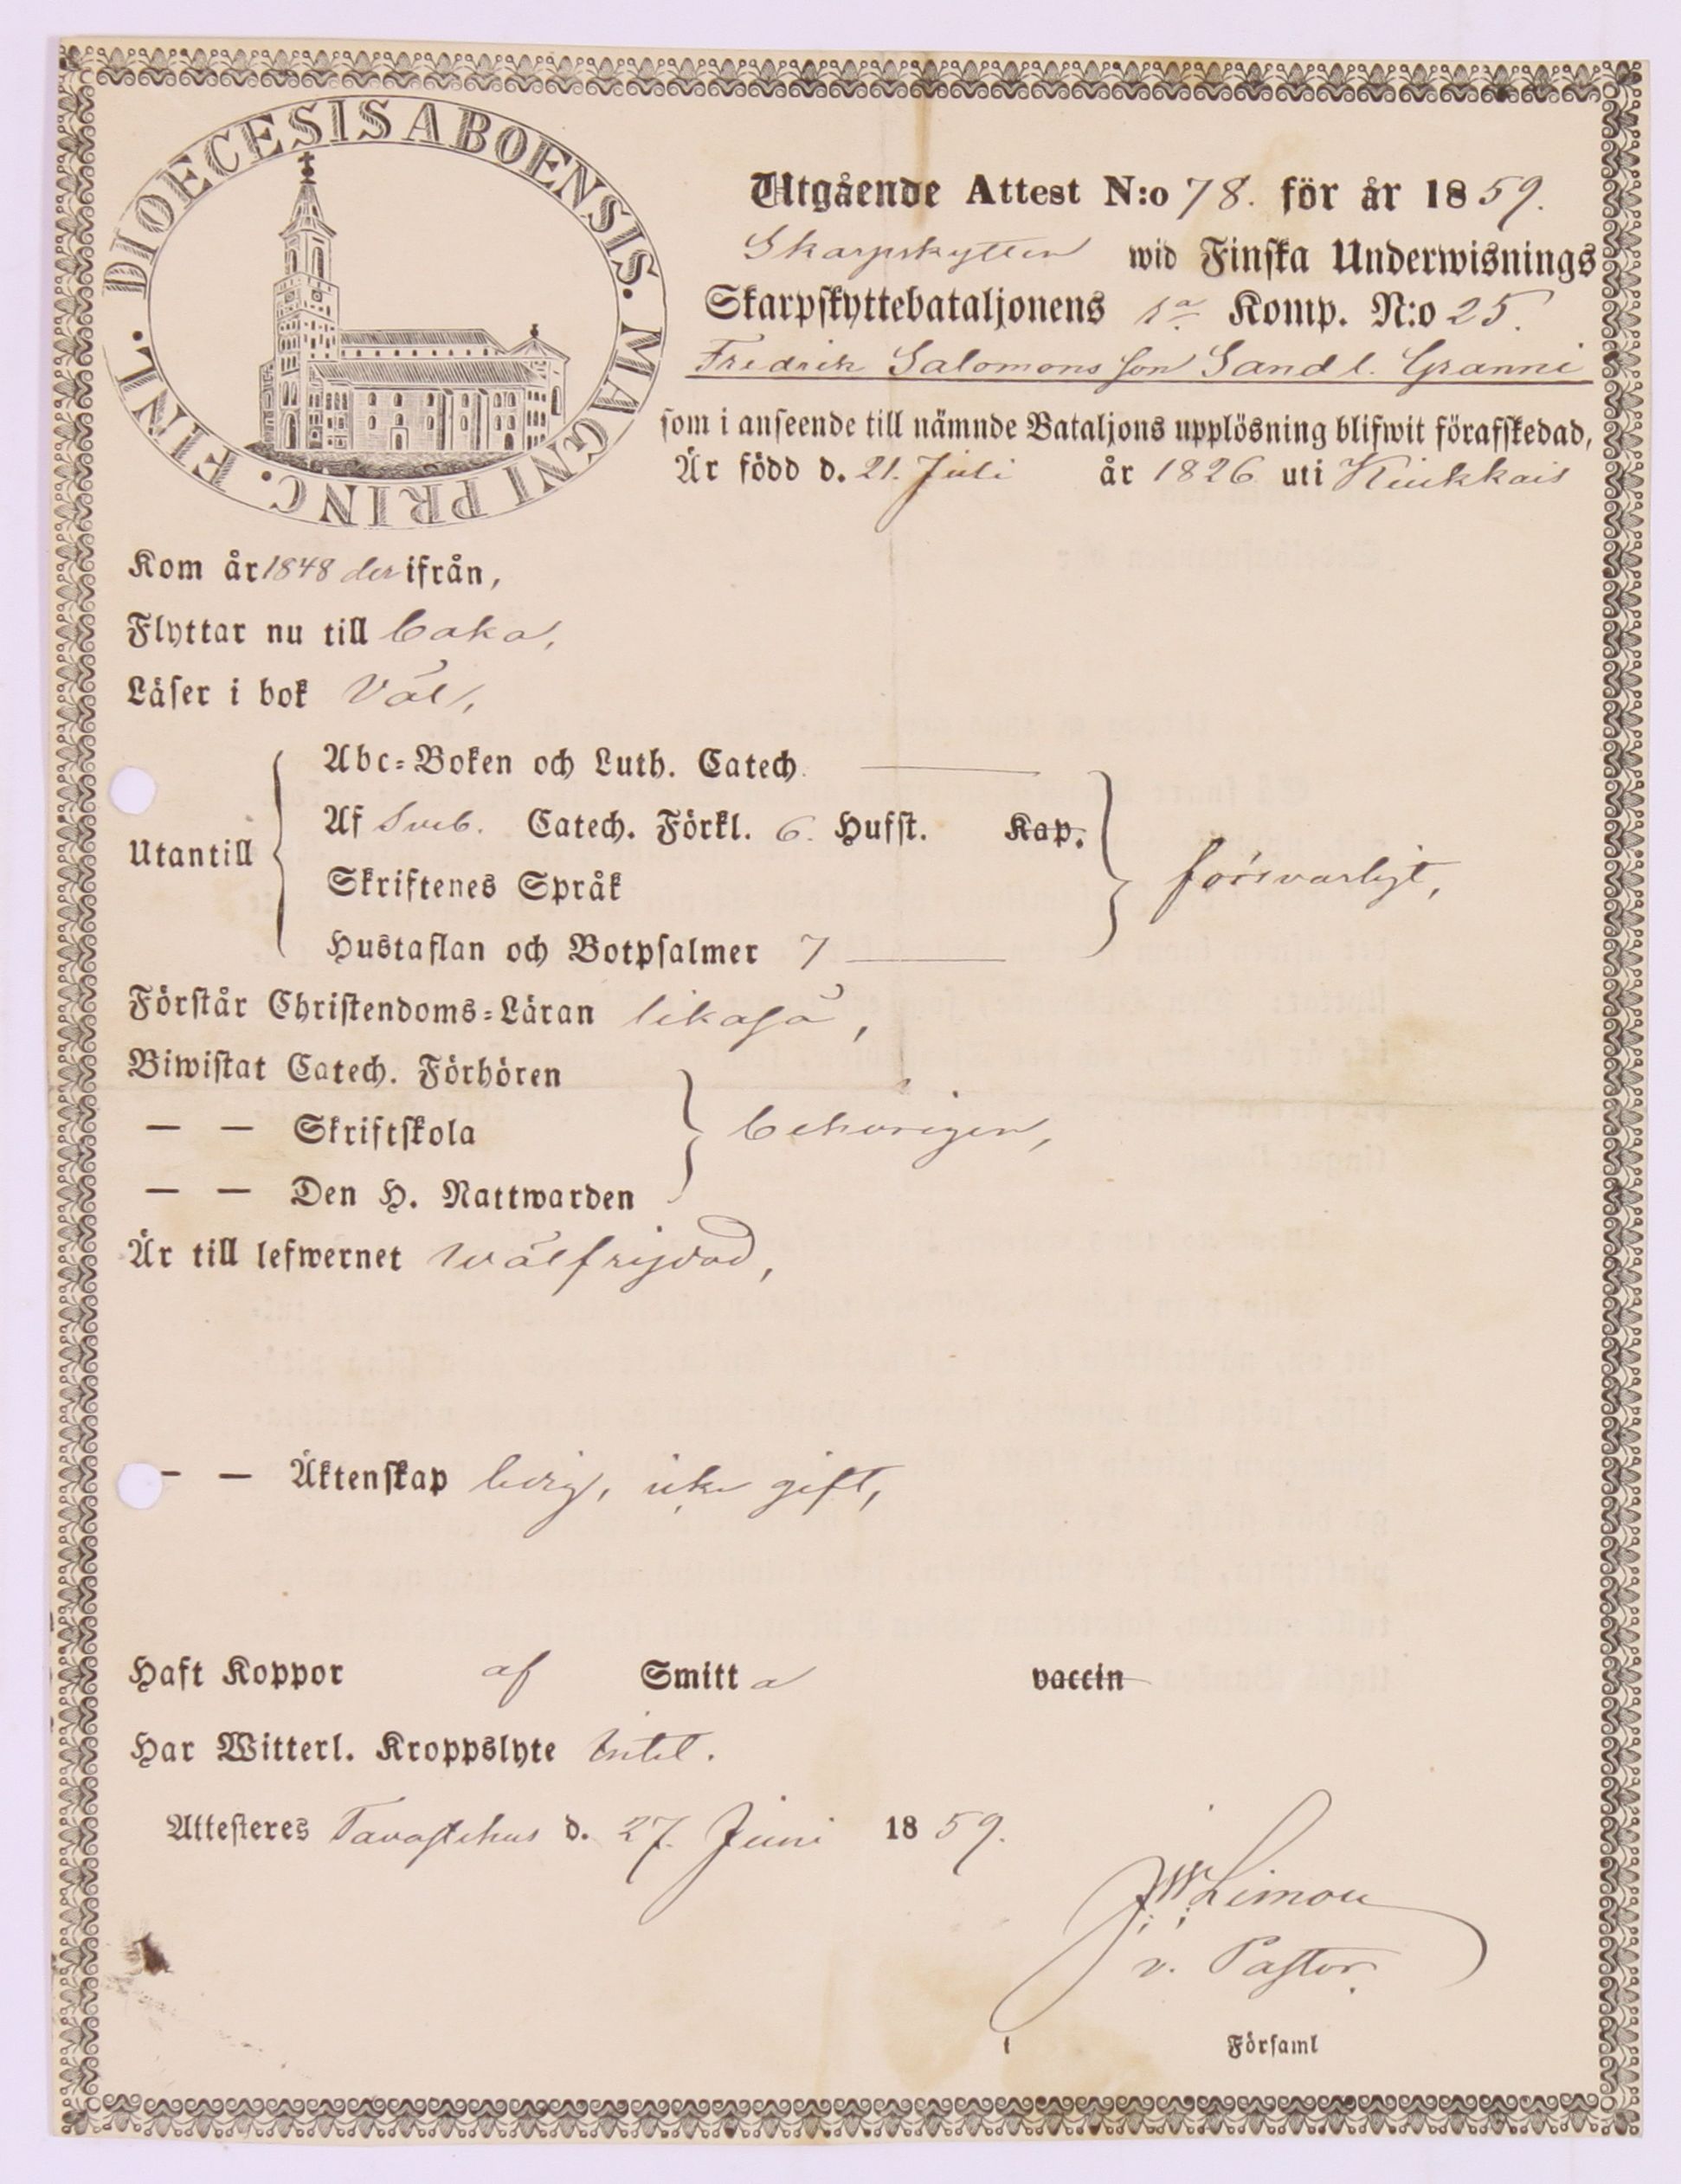 DIOECESIS ABOENSIS. MAGNI PRINC. FINL.
Utgående Attest N:o 78. för år 1859.
Skarpskytten wid Finska Underwisnings
Skarpskyttebataljonens 1a Komp. N:o 25.
Fredrik Salomons son Sand l. Granni
som i anseende till nämnde Bataljons upplösning blifwit förafskedad,
Är född d. 21. Juli år 1826 uti Kiukkais
Kom år 1848 der ifrån,
Flyttar nu till
Läser i bok Väl,
Abc-Boken och Luth. Catech.
Af Sveb. Catech. Förkl. 6. Hufst. Kap.
Utantill försvarligt,
Skriftenes Språk
Hustaflan och Botpsalmer 7
Förstår Christendoms-Läran likaså,
Biwistat Catech. Förhören
— — Skriftskola behörigen,
— — Den H. Nattwarden
Är till lefwernet wälfrejdad,
— — Äktenskap ledig, icke gift,
Haft Koppor af Smitta vaccin
Har Witterl. Kroppslyte intet.
Attesteres Tavastehus d. 27. Juni 1859.
v. Pastor.
i Församl